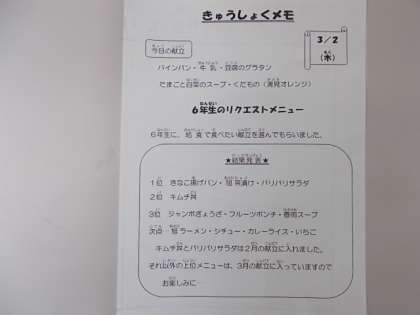 きゅうしょくメモ
3／2
（水）
今日の献立
パインパン・牛乳・豆腐のグラタン
たまごと白菜のスープ・くだもの（清見オレンジ）
6年生のリクエストメニュー
6年生に、給食で食べたい献立を選んでもらいました。
★結果発表★
1位　きなこ揚げパン・旭豚漬け・パリパリサラダ
2位　キムチ丼
3位　ジャンボぎょうざ・フルーツポンチ・春雨スープ
次点　旭ラーメン・シチュー・カレーライス・いちご
キムチ丼とパリパリサラダは2月の献立に入れました。
それ以外の上位メニューは、3月の献立に入っていますので
お楽しみに